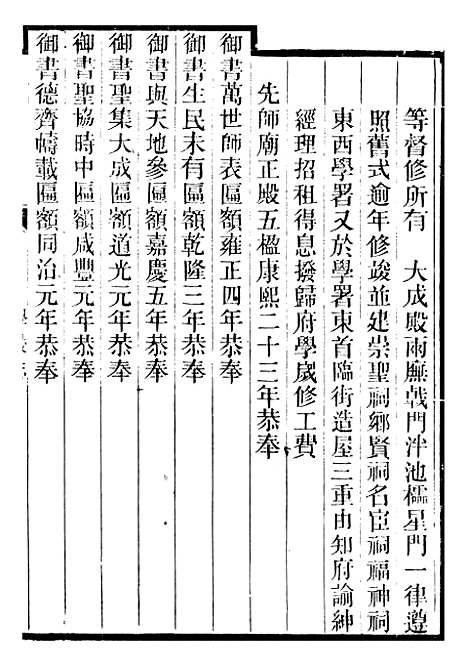 等督修所有　大成殿兩廡戟門泮池櫺星門一律遵
照舊式逾年修竣並建崇聖祠鄉賢祠名宦祠福神祠
東西學署又於學署東首臨街造屋三重由知府諭紳
經理招租得息撥歸府學歲修工費
先師廟正殿五楹康熙二十三年恭奉
御書萬世師表匾額雍正四年恭奉
御書生民未有匾額乾隆三年恭奉
御書與天地參匾額嘉慶五年恭奉
御書聖集大成匾額道光元年恭奉
御書聖協時中匾額咸豐元年恭奉
御書德齊幬載匾額同治元年恭奉